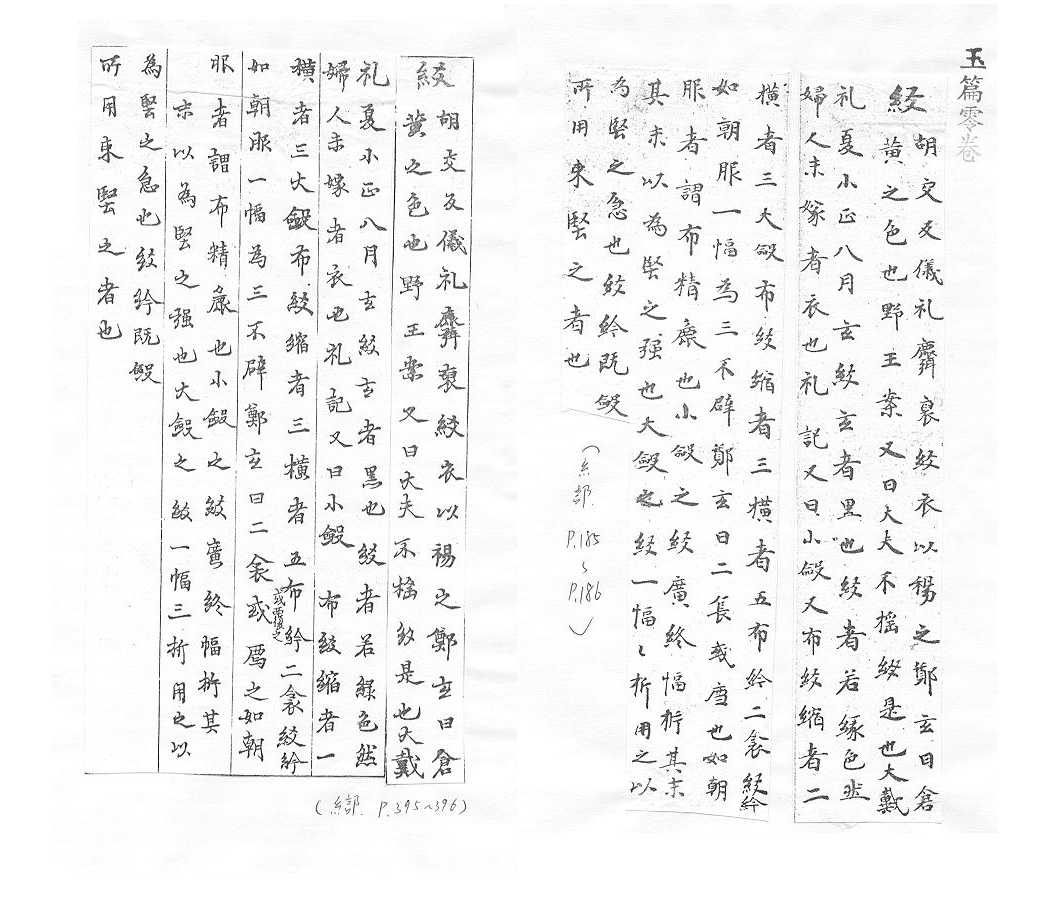 玉篇零卷
絞 胡交反儀礼齋裒絞衣以裼之鄭玄曰倉
黃之色也野王案又曰大夫不榣絞是也大戴
礼夏小正八月玄絞玄者黑也絞者若緑色然
婦人未嫁者衣也礼記又曰小斂又布絞縮者二
横者三大斂布絞縮者三横者五布紟二衾絞紟
如朝服一幅為三不辟鄭玄曰二長或雪也如朝
服者謂布精麁也小斂之絞廣終幅析其末
其末以為堅之强也大斂之絞一幅々析用之以
為堅之急也絞紟既斂
所用束堅之者也
(糸部 P.185~P.186)
絞 胡交反儀礼齋裒絞衣以裼之鄭玄曰倉
黃之色也野王案又曰大夫不榣絞是也大戴
礼夏小正八月玄絞玄者黑也絞者若緑色然
婦人未嫁者衣也礼記又曰小斂 布絞縮者一
横者三大斂布絞縮者三横者五布紟二衾絞紟
如朝服一幅為三不辟鄭玄曰二衾或
之如朝
服者謂布精麁也小斂之絞廣終幅析其
末以為堅之强也大斂之絞一幅三析用之以
為堅之急也絞紟既斂
所用束堅之者也
(糸部 P.395~396)